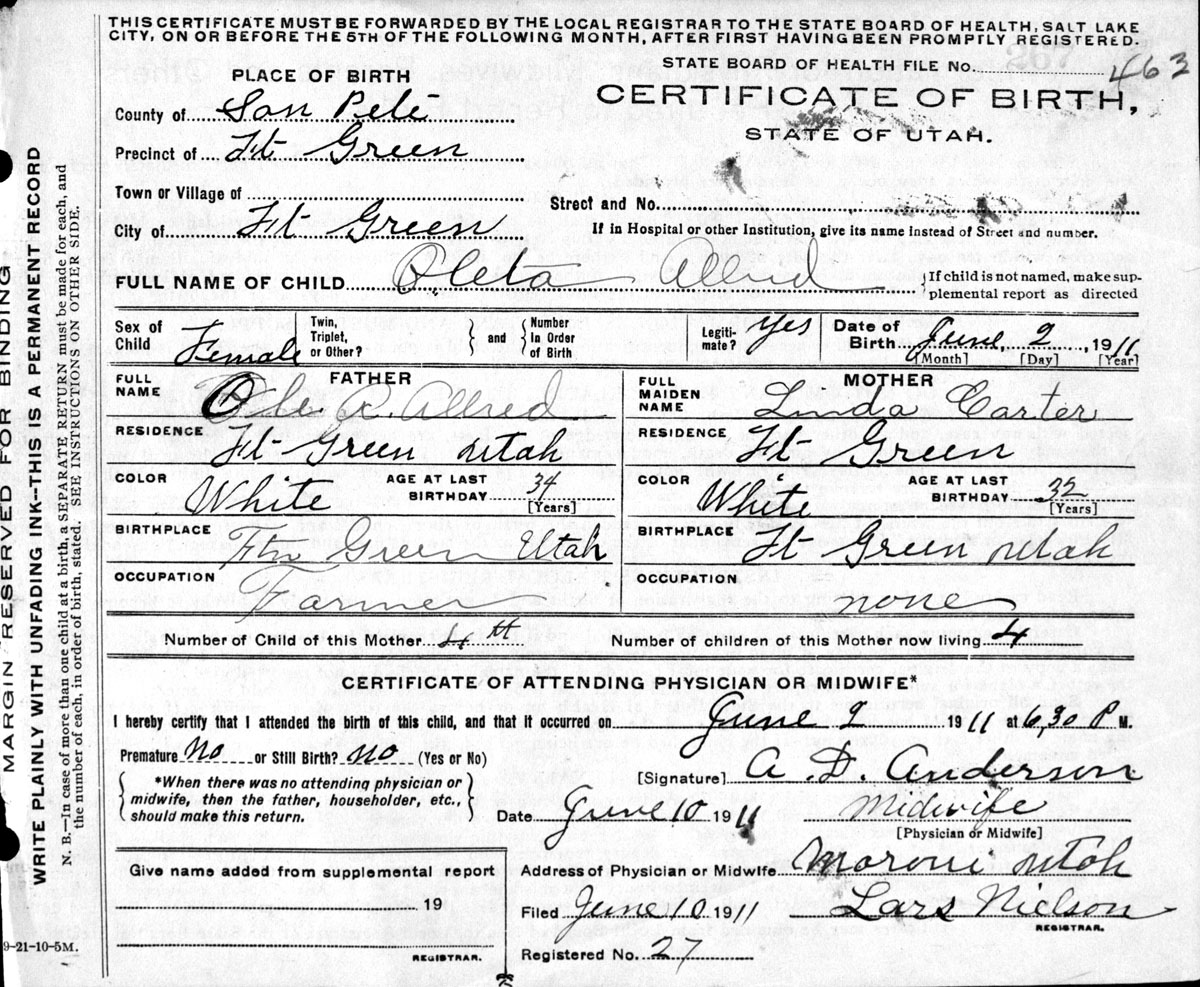 THIS CERTIFICATE MUST BE FORWARDED BY THE LOCAL REGISTRAR TO THE STATE BOARD OF HEALTH, SALT LAKE
CITY, ON OR BEFORE THE 5TH OF THE FOLLOWING MONTH, AFTER FIRST HAVING BEEN PROMPTLY REGISTERED.
STATE BOARD OF HEALTH FILE No. 463
CERTIFICATE OF BIRTH,
STATE OF UTAH.
PLACE OF BIRTH
County of San Pete
Precinct of Ft Green
Town or Village of
Street and No.
City of Ft Green
If in Hospital or other Institution, give its name instead of Street and number.
FULL NAME OF CHILD Oleta Allred
{If child is not named, make sup-
plemental report as directed
Sex of Child Female
Twin, Triplet, or Other?
} and {
Number In Order of Birth
Legiti-mate? Yes
Date of Birth June 9, 1911
[Month] [Day] [Year]
FATHER
FULL NAME R. Allred
RESIDENCE Ft Green Utah
COLOR White
AGE AT LAST BIRTHDAY 34
[Years]
BIRTHPLACE Ftn Green Utah
OCCUPATION Farmer
MOTHER
FULL MAIDEN NAME Linda Carter
RESIDENCE Ft Green
COLOR White
AGE AT LAST BIRTHDAY 32
[Years]
BIRTHPLACE Ft Green Utah
OCCUPATION none
Number of Child of this Mother 4th Number of children of this Mother now living 4
CERTIFICATE OF ATTENDING PHYSICIAN OR MIDWIFE*
I hereby certify that I attended the birth of this child, and that it occurred on June 9 1911 at 6,30 P M.
Premature? No or Still Birth? no (Yes or No)
*When there was no attending physician or
midwife, then the father, householder, etc.,
should make this return.
[Signature] A. D. Anderson
Date June 10 1911 Midwife
[Physician or Midwife]
Give name added from supplemental report
19
REGISTRAR.
Address of Physician or Midwife Moroni Utah
Filed June 10 1911 Lars Nielson
REGISTRAR.
Registered No. 27
9-21-10-5M.
MARGIN RESERVED FOR BINDING
WRITE PLAINLY WITH UNFADING INK--THIS IS A PERMANENT RECORD
N. B.—In case of more than one child at a birth, a SEPARATE RETURN must be made for each, and
the number of each, in order of birth, stated. SEE INSTRUCTIONS ON OTHER SIDE.